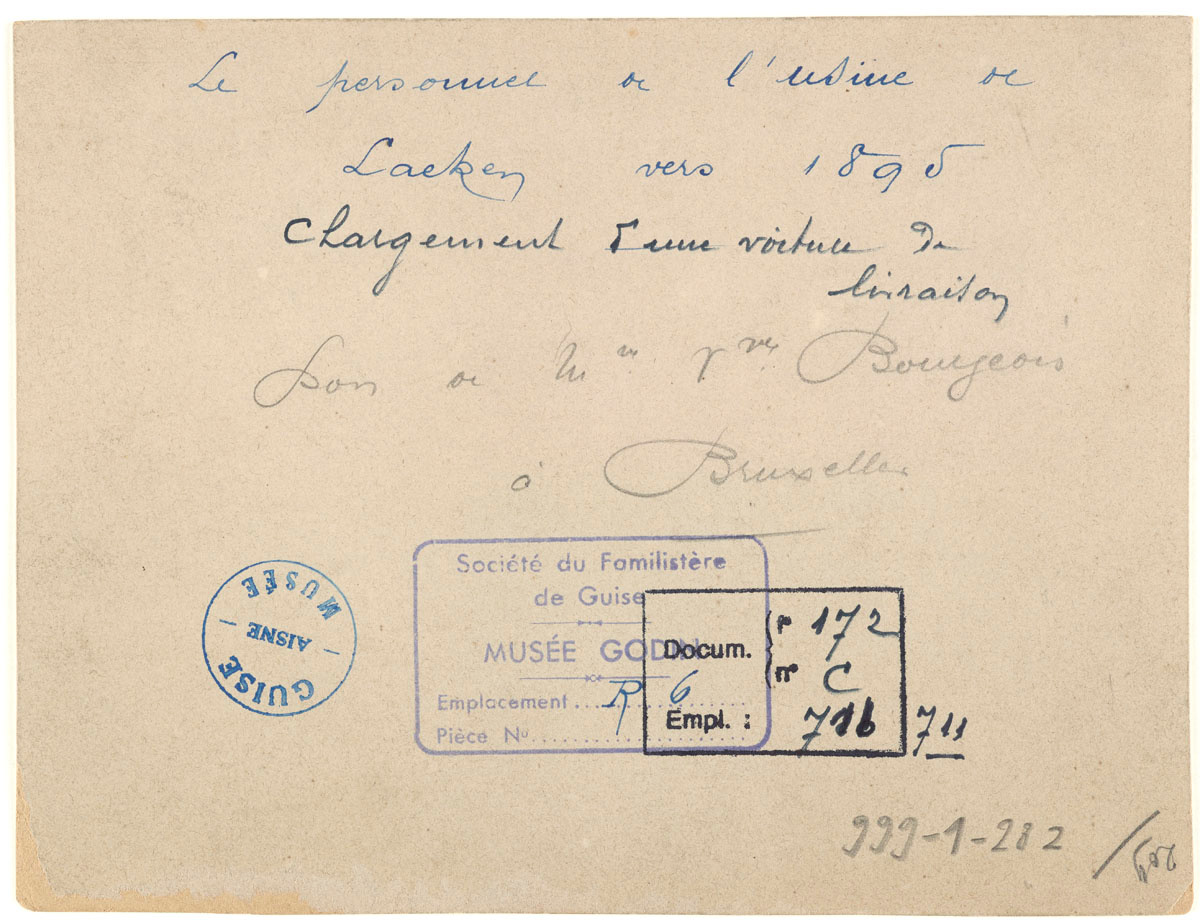 Le personnel de l'usine de
Laeken vers 1895
Chargement d'une voiture de
livraison
Don de Mme Vve Bourgeois
à Bruxelles
Société du Familistère
de Guise
MUSÉE GODIN
Emplacement R 6
Pièce No
Docum. r 172
n° C
Empl. : 711
GUISE
MUSÉE
AISNE
999-1-282